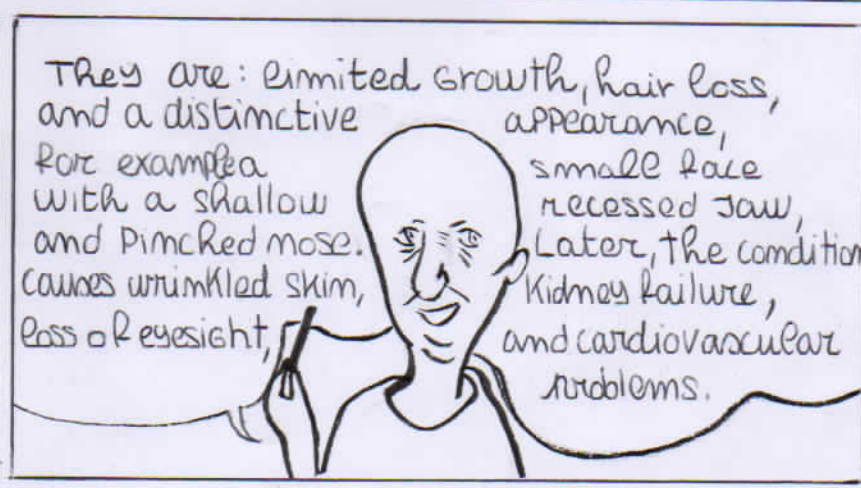 They are: limited growth, hair loss,
and a distinctive appearance,
for example a small face
with a shallow recessed jaw,
and pinched nose. Later, the condition
causes wrinkled skin, kidney failure,
loss of eyesight, and cardiovascular
problems.